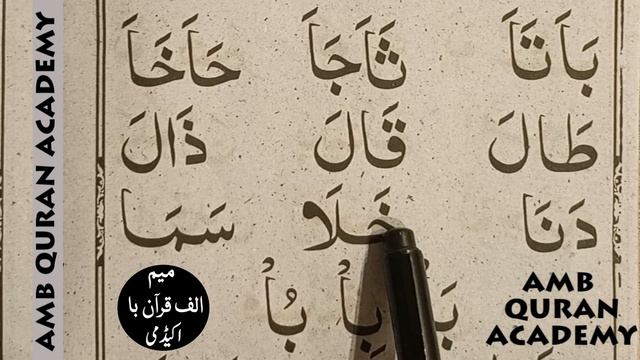 بَا تَا ثَا جَا حَا خَا
طَالَ قَالَ ذَالَ
دَنَا خَلَا سَمَا
بُاْ
AMB QURAN ACADEMY
میم
الف قرآن با
اکیڈمی
AMB
QURAN
ACADEMY